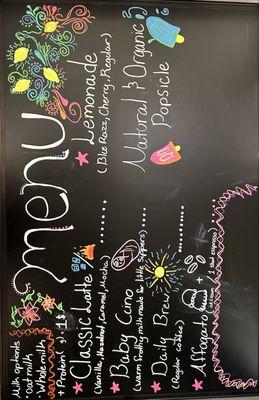 Milk options
oat milk
Whole milk
menu
Classic Latte .......
(Vanilla, Hazelnut, Caramel, Mocha)
Baby Cino .....
(warm frothy milk made 4 little sippers)
Daily Brew .......
(Regular coffee)
Affogato ...
1 shot espresso
Lemonade
(Blue Razz, Cherry, Regular)
Natural & Organic
Popsicle